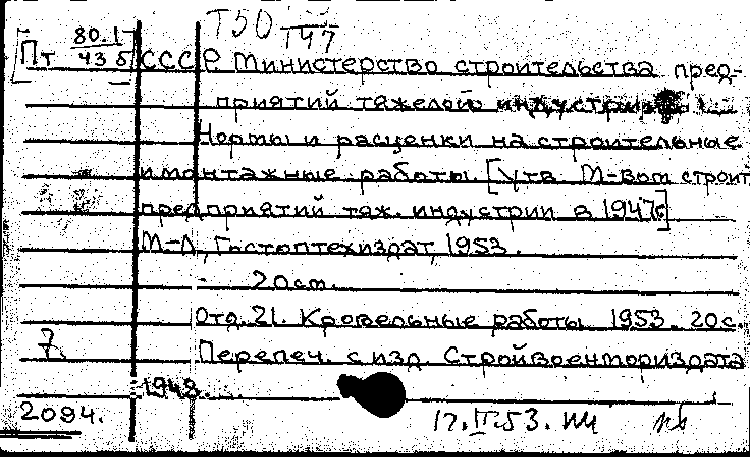 Т50
Т47
[Пт 80.1
43 5] СССР. Министерство строительства пред-
приятий тяжелой индустрии
Нормы и расценки на строительные
и монтажные работы. [Утв. М-вом строит.
предприятий тяж. индустрии в 1947г]
М-Л, Гостоптехиздат, 1953.
20 см.
Отд. 21. Кровельные работы 1953. 20 с.
7 Перепеч. с изд. Стройвоенмориздата
1948.
2094. 17.IV.53.